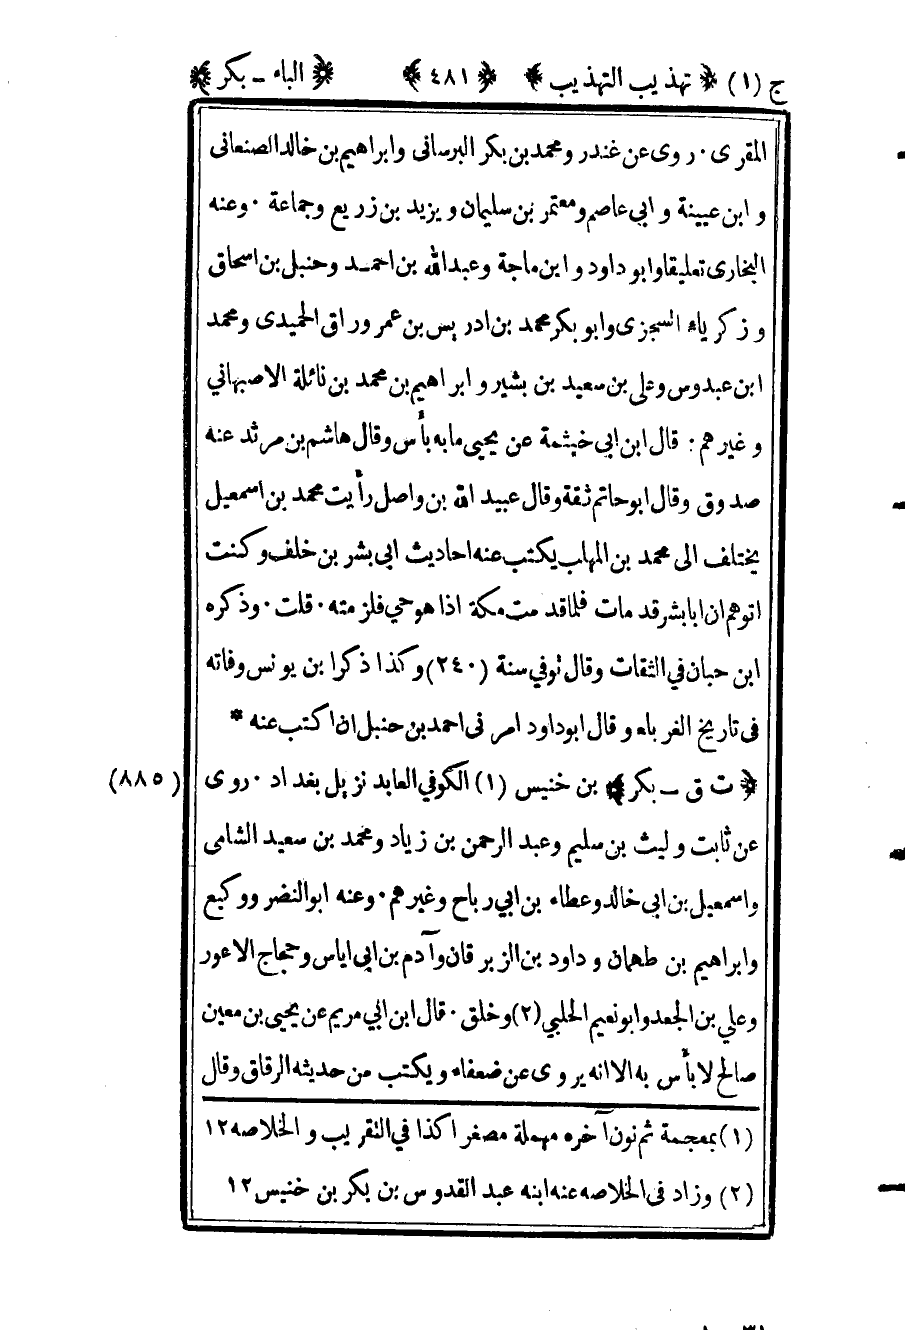 ج (١) ﴿ تهذيب التهذيب ﴾ ﴿ ٤٨١ ﴾ ﴿ الباء ـ بكر ﴾
المقرى · روى عن غندر ومحمد بن بكر البرسانى وابراهيم بن خالد الصنعانى
وابن عيينة وابي عاصم ومعتمر بن سليمان ويزيد بن زريع وجماعة · وعنه
البخارى تعليقا وابو داود وابن ماجة وعبدالله بن احمد وحنبل بن اسحاق
وزكرياء السجزى وابو بكر محمد بن ادريس بن عمر وراق الحميدى ومحمد
ابن عبدوس وعلى بن سعيد بن بشير وابراهيم بن محمد بن نائلة الاصبهاني
وغيرهم : قال ابن ابي خيثمة عن يحيى مابه بأس وقال هاشم بن مرثد عنه
صدوق وقال ابوحاتم ثقة وقال عبيد الله بن واصل رأيت محمد بن اسمعيل
يختلف الى محمد بن المهلب يكتب عنه احاديث ابى بشر بن خلف وكنت
اتوهم ان ابا بشر قد مات فلما قدمت مكة اذا هو حي فلزمته · قلت · وذكره
ابن حبان في الثقات وقال توفي سنة (٢٤٠) وكذا ذكر ابن يونس وفاته
فى تاريخ الغرباء وقال ابوداود امرنى احمد بن حنبل ان اكتب عنه *
﴿ ت ق ـ بكر ﴾ بن خنيس (١) الكوفي العابد نزيل بغداد · روى (٨٨٥)
عن ثابت وليث بن سليم وعبد الرحمن بن زياد ومحمد بن سعيد الشامى
واسمعيل بن ابى خالد وعطاء بن ابي رباح وغيرهم · وعنه ابوالنضر ووكيع
وابراهيم بن طهمان وداود بن الزبرقان وآدم بن ابى اياس وحجاج الاعور
وعلي بن الجعد وابو نعيم الحلبي (٢) وخلق · قال ابن ابي مريم عن يحيى بن معين
صالح لا بأس به الا انه يروى عن ضعفاء ويكتب من حديثه الرقاق وقال
(١) بمعجمة ثم نون آخره مهملة مصغرا كذا في التقريب والخلاصه ١٢
(٢) وزاد فى الخلاصه عنه ابنه عبد القدوس بن بكر بن خنيس ١٢